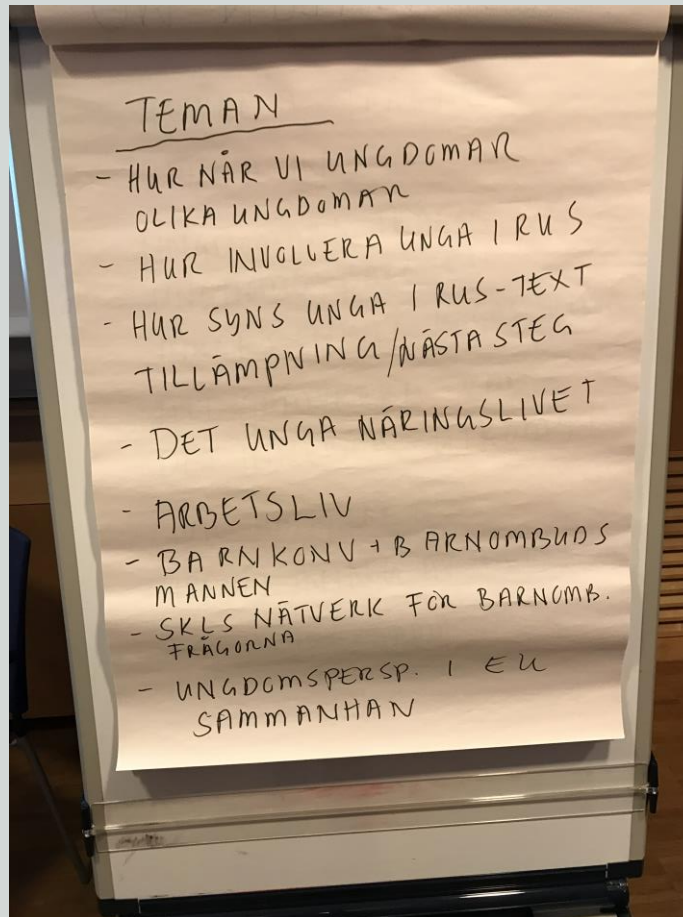 TEMAN
- HUR NÅR VI UNGDOMAR
OLIKA UNGDOMAR
- HUR INVOLVERA UNGA I RUS
- HUR SYNS UNGA I RUS-TEXT
TILLÄMPNING/NÄSTA STEG
- DET UNGA NÄRINGSLIVET
- ARBETSLIV
- BARNKONV + BARNOMBUDS
MANNEN
- SKLS NÄTVERK FÖR BARNOMB.
FRÅGORNA
- UNGDOMSPERSP. I EU
SAMMANHAN